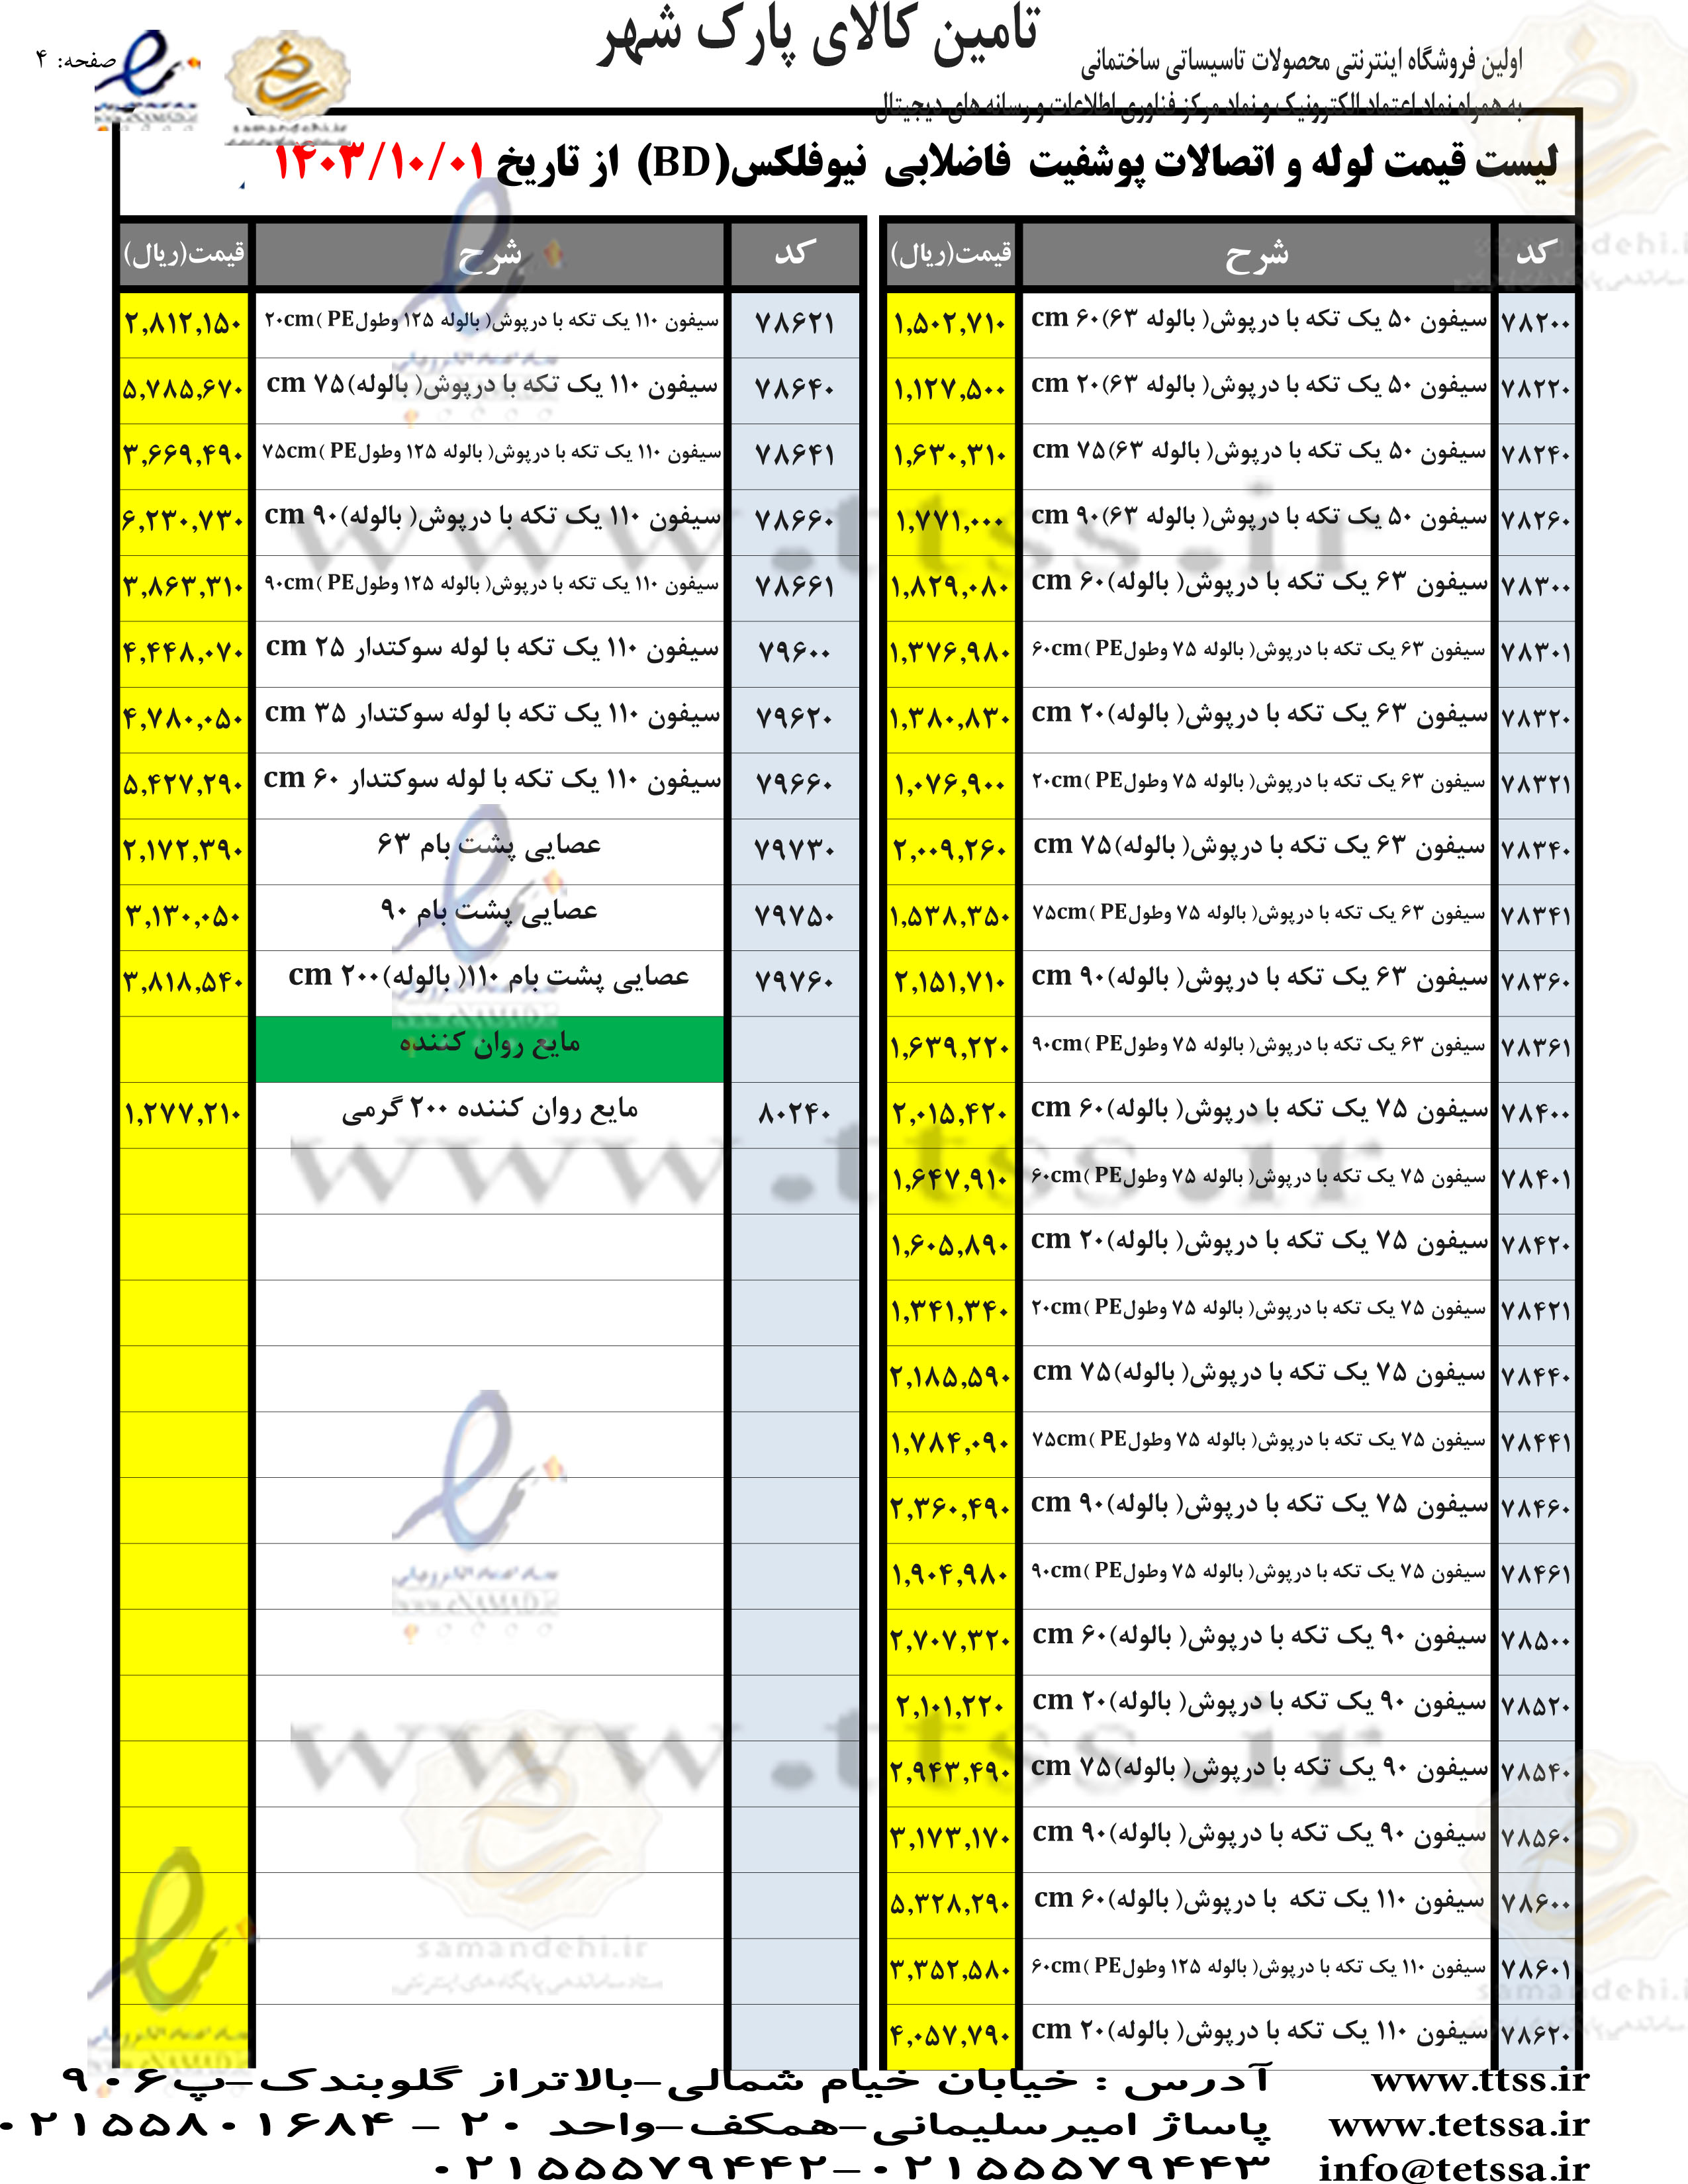 صفحه: ۴
تامین کالای پارک شهر
اولین فروشگاه اینترنتی محصولات تاسیساتی ساختمانی
به همراه نماد اعتماد الکترونیک و نماد مرکز فناوری اطلاعات و رسانه های دیجیتال
لیست قیمت لوله و اتصالات پوشفیت فاضلابی نیوفلکس(BD) از تاریخ ۱۴۰۳/۱۰/۰۱
کد شرح قیمت(ریال)
۷۸۲۰۰ سیفون ۵۰ یک تکه با درپوش( بالوله ۶۳)۶۰ cm ۱,۵۰۲,۷۱۰
۷۸۲۲۰ سیفون ۵۰ یک تکه با درپوش( بالوله ۶۳)۲۰ cm ۱,۱۲۷,۵۰۰
۷۸۲۴۰ سیفون ۵۰ یک تکه با درپوش( بالوله ۶۳)۷۵ cm ۱,۶۳۰,۳۱۰
۷۸۲۶۰ سیفون ۵۰ یک تکه با درپوش( بالوله ۶۳)۹۰ cm ۱,۷۷۱,۰۰۰
۷۸۳۰۰ سیفون ۶۳ یک تکه با درپوش( بالوله)۶۰ cm ۱,۸۲۹,۰۸۰
۷۸۳۰۱ سیفون ۶۳ یک تکه با درپوش( بالوله ۷۵ وطولPE )۶۰cm ۱,۳۷۶,۹۸۰
۷۸۳۲۰ سیفون ۶۳ یک تکه با درپوش( بالوله)۲۰ cm ۱,۳۸۰,۸۳۰
۷۸۳۲۱ سیفون ۶۳ یک تکه با درپوش( بالوله ۷۵ وطولPE )۲۰cm ۱,۰۷۶,۹۰۰
۷۸۳۴۰ سیفون ۶۳ یک تکه با درپوش( بالوله)۷۵ cm ۲,۰۰۹,۲۶۰
۷۸۳۴۱ سیفون ۶۳ یک تکه با درپوش( بالوله ۷۵ وطولPE )۷۵cm ۱,۵۳۸,۳۵۰
۷۸۳۶۰ سیفون ۶۳ یک تکه با درپوش( بالوله)۹۰ cm ۲,۱۵۱,۷۱۰
۷۸۳۶۱ سیفون ۶۳ یک تکه با درپوش( بالوله ۷۵ وطولPE )۹۰cm ۱,۶۳۹,۲۲۰
۷۸۴۰۰ سیفون ۷۵ یک تکه با درپوش( بالوله)۶۰ cm ۲,۰۱۵,۴۲۰
۷۸۴۰۱ سیفون ۷۵ یک تکه با درپوش( بالوله ۷۵ وطولPE )۶۰cm ۱,۶۴۷,۹۱۰
۷۸۴۲۰ سیفون ۷۵ یک تکه با درپوش( بالوله)۲۰ cm ۱,۶۰۵,۸۹۰
۷۸۴۲۱ سیفون ۷۵ یک تکه با درپوش( بالوله ۷۵ وطولPE )۲۰cm ۱,۳۴۱,۳۴۰
۷۸۴۴۰ سیفون ۷۵ یک تکه با درپوش( بالوله)۷۵ cm ۲,۱۸۵,۵۹۰
۷۸۴۴۱ سیفون ۷۵ یک تکه با درپوش( بالوله ۷۵ وطولPE )۷۵cm ۱,۷۸۴,۰۹۰
۷۸۴۶۰ سیفون ۷۵ یک تکه با درپوش( بالوله)۹۰ cm ۲,۳۶۰,۴۹۰
۷۸۴۶۱ سیفون ۷۵ یک تکه با درپوش( بالوله ۷۵ وطولPE )۹۰cm ۱,۹۰۴,۹۸۰
۷۸۵۰۰ سیفون ۹۰ یک تکه با درپوش( بالوله)۶۰ cm ۲,۷۰۷,۳۲۰
۷۸۵۲۰ سیفون ۹۰ یک تکه با درپوش( بالوله)۲۰ cm ۲,۱۰۱,۲۲۰
۷۸۵۴۰ سیفون ۹۰ یک تکه با درپوش( بالوله)۷۵ cm ۲,۹۴۳,۴۹۰
۷۸۵۶۰ سیفون ۹۰ یک تکه با درپوش( بالوله)۹۰ cm ۳,۱۷۳,۱۷۰
۷۸۶۰۰ سیفون ۱۱۰ یک تکه با درپوش( بالوله)۶۰ cm ۵,۳۲۸,۲۹۰
۷۸۶۰۱ سیفون ۱۱۰ یک تکه با درپوش( بالوله ۱۲۵ وطولPE )۶۰cm ۳,۳۵۲,۵۸۰
۷۸۶۲۰ سیفون ۱۱۰ یک تکه با درپوش( بالوله)۲۰ cm ۴,۰۵۷,۷۹۰
کد شرح قیمت(ریال)
۷۸۶۲۱ سیفون ۱۱۰ یک تکه با درپوش( بالوله ۱۲۵ وطولPE )۲۰cm ۲,۸۱۲,۱۵۰
۷۸۶۴۰ سیفون ۱۱۰ یک تکه با درپوش( بالوله)۷۵ cm ۵,۷۸۵,۶۷۰
۷۸۶۴۱ سیفون ۱۱۰ یک تکه با درپوش( بالوله ۱۲۵ وطولPE )۷۵cm ۳,۶۶۹,۴۹۰
۷۸۶۶۰ سیفون ۱۱۰ یک تکه با درپوش( بالوله)۹۰ cm ۶,۲۳۰,۷۳۰
۷۸۶۶۱ سیفون ۱۱۰ یک تکه با درپوش( بالوله ۱۲۵ وطولPE )۹۰cm ۳,۸۶۳,۳۱۰
۷۹۶۰۰ سیفون ۱۱۰ یک تکه با لوله سوکتدار ۲۵ cm ۴,۴۴۸,۰۷۰
۷۹۶۲۰ سیفون ۱۱۰ یک تکه با لوله سوکتدار ۳۵ cm ۴,۷۸۰,۰۵۰
۷۹۶۶۰ سیفون ۱۱۰ یک تکه با لوله سوکتدار ۶۰ cm ۵,۴۲۷,۲۹۰
۷۹۷۳۰ عصایی پشت بام ۶۳ ۲,۱۷۲,۳۹۰
۷۹۷۵۰ عصایی پشت بام ۹۰ ۳,۱۳۰,۰۵۰
۷۹۷۶۰ عصایی پشت بام ۱۱۰( بالوله)۲۰۰ cm ۳,۸۱۸,۵۴۰
مایع روان کننده
۸۰۲۴۰ مایع روان کننده ۲۰۰ گرمی ۱,۲۷۷,۲۱۰
www.ttss.ir
www.ttss.ir
www.ttss.ir
samandehi.ir
www.ttss.ir آدرس : خیابان خیام شمالی–بالاتراز گلوبندک–پ۹۰۶
www.tetssa.ir پاساژ امیرسلیمانی–همکف–واحد ۲۰ – ۰۲۱۵۵۸۰۱۶۸۴
info@tetssa.ir ۰۲۱۵۵۵۷۹۴۴۲–۰۲۱۵۵۵۷۹۴۴۳